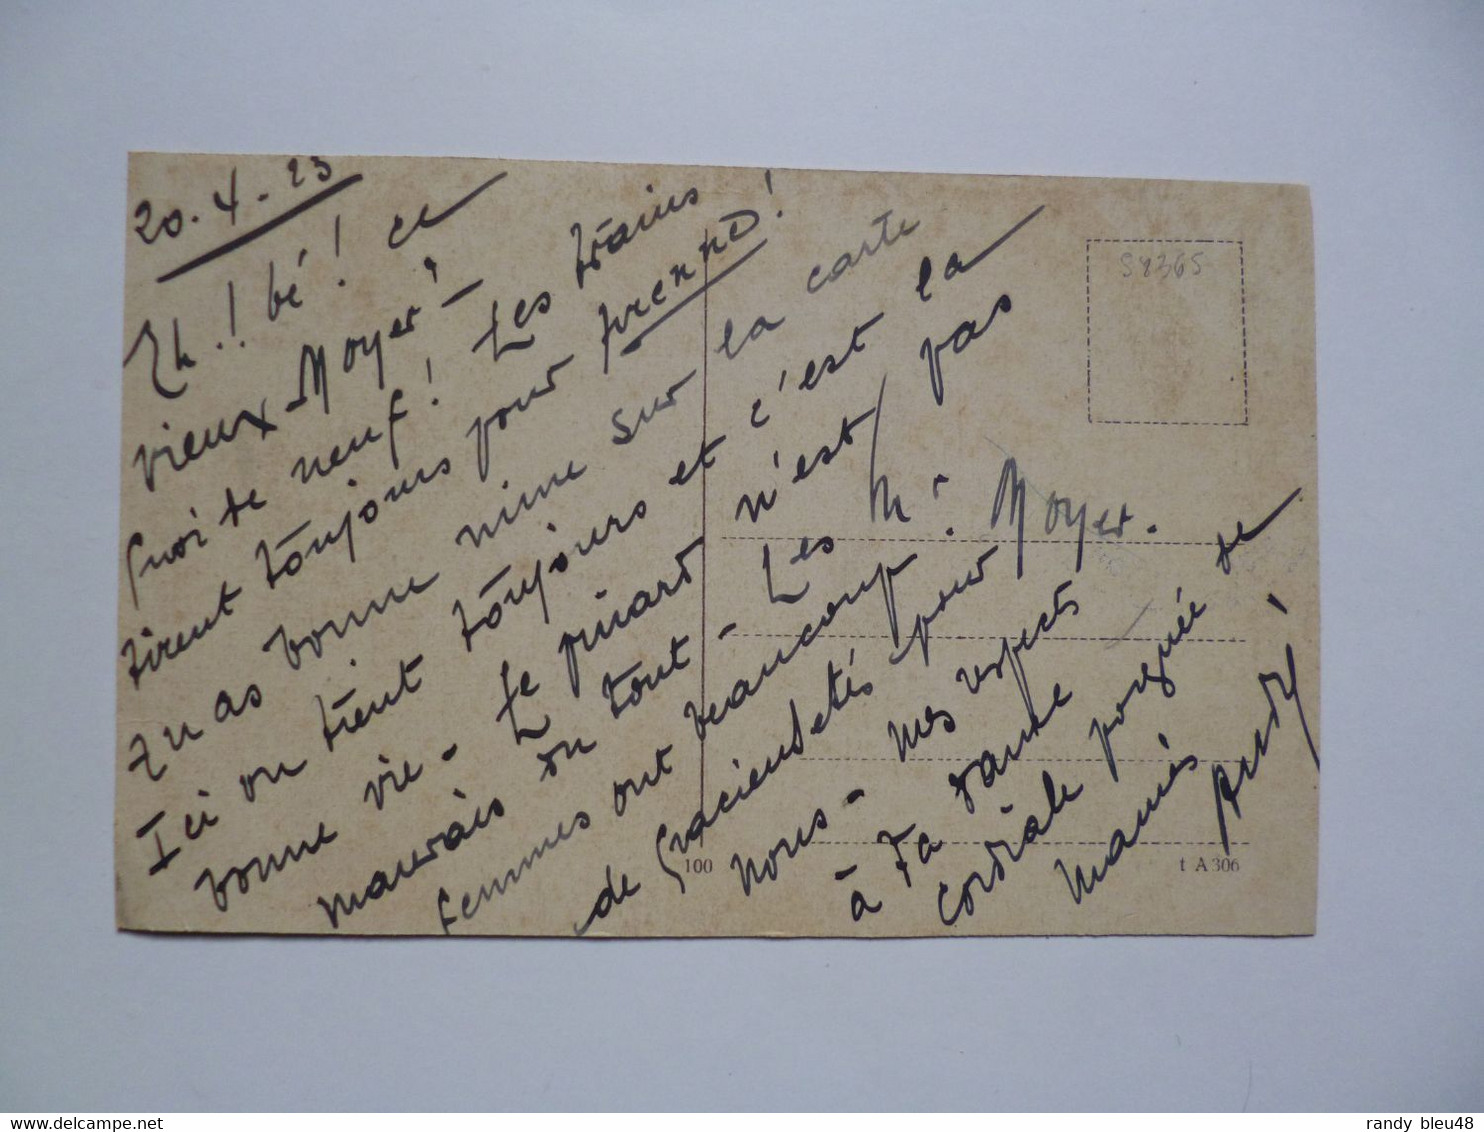 20.4.23
Eh! bé! ce
vieux Moyet!
Quoi de neuf! Les trains
tirent toujours pour prennd!
Tu as bonne mine sur la carte
Ici on tient toujours et c'est la
bonne vie - Le pinard n'est pas
mauvais du tout - Les
femmes ont beaucoup
de gracieusetés pour
nous - Mes respects
à Ta dame
cordiale poignée de
mains
André
Mr. Moyet.
S4365
100
t A 306
randy_bleu48